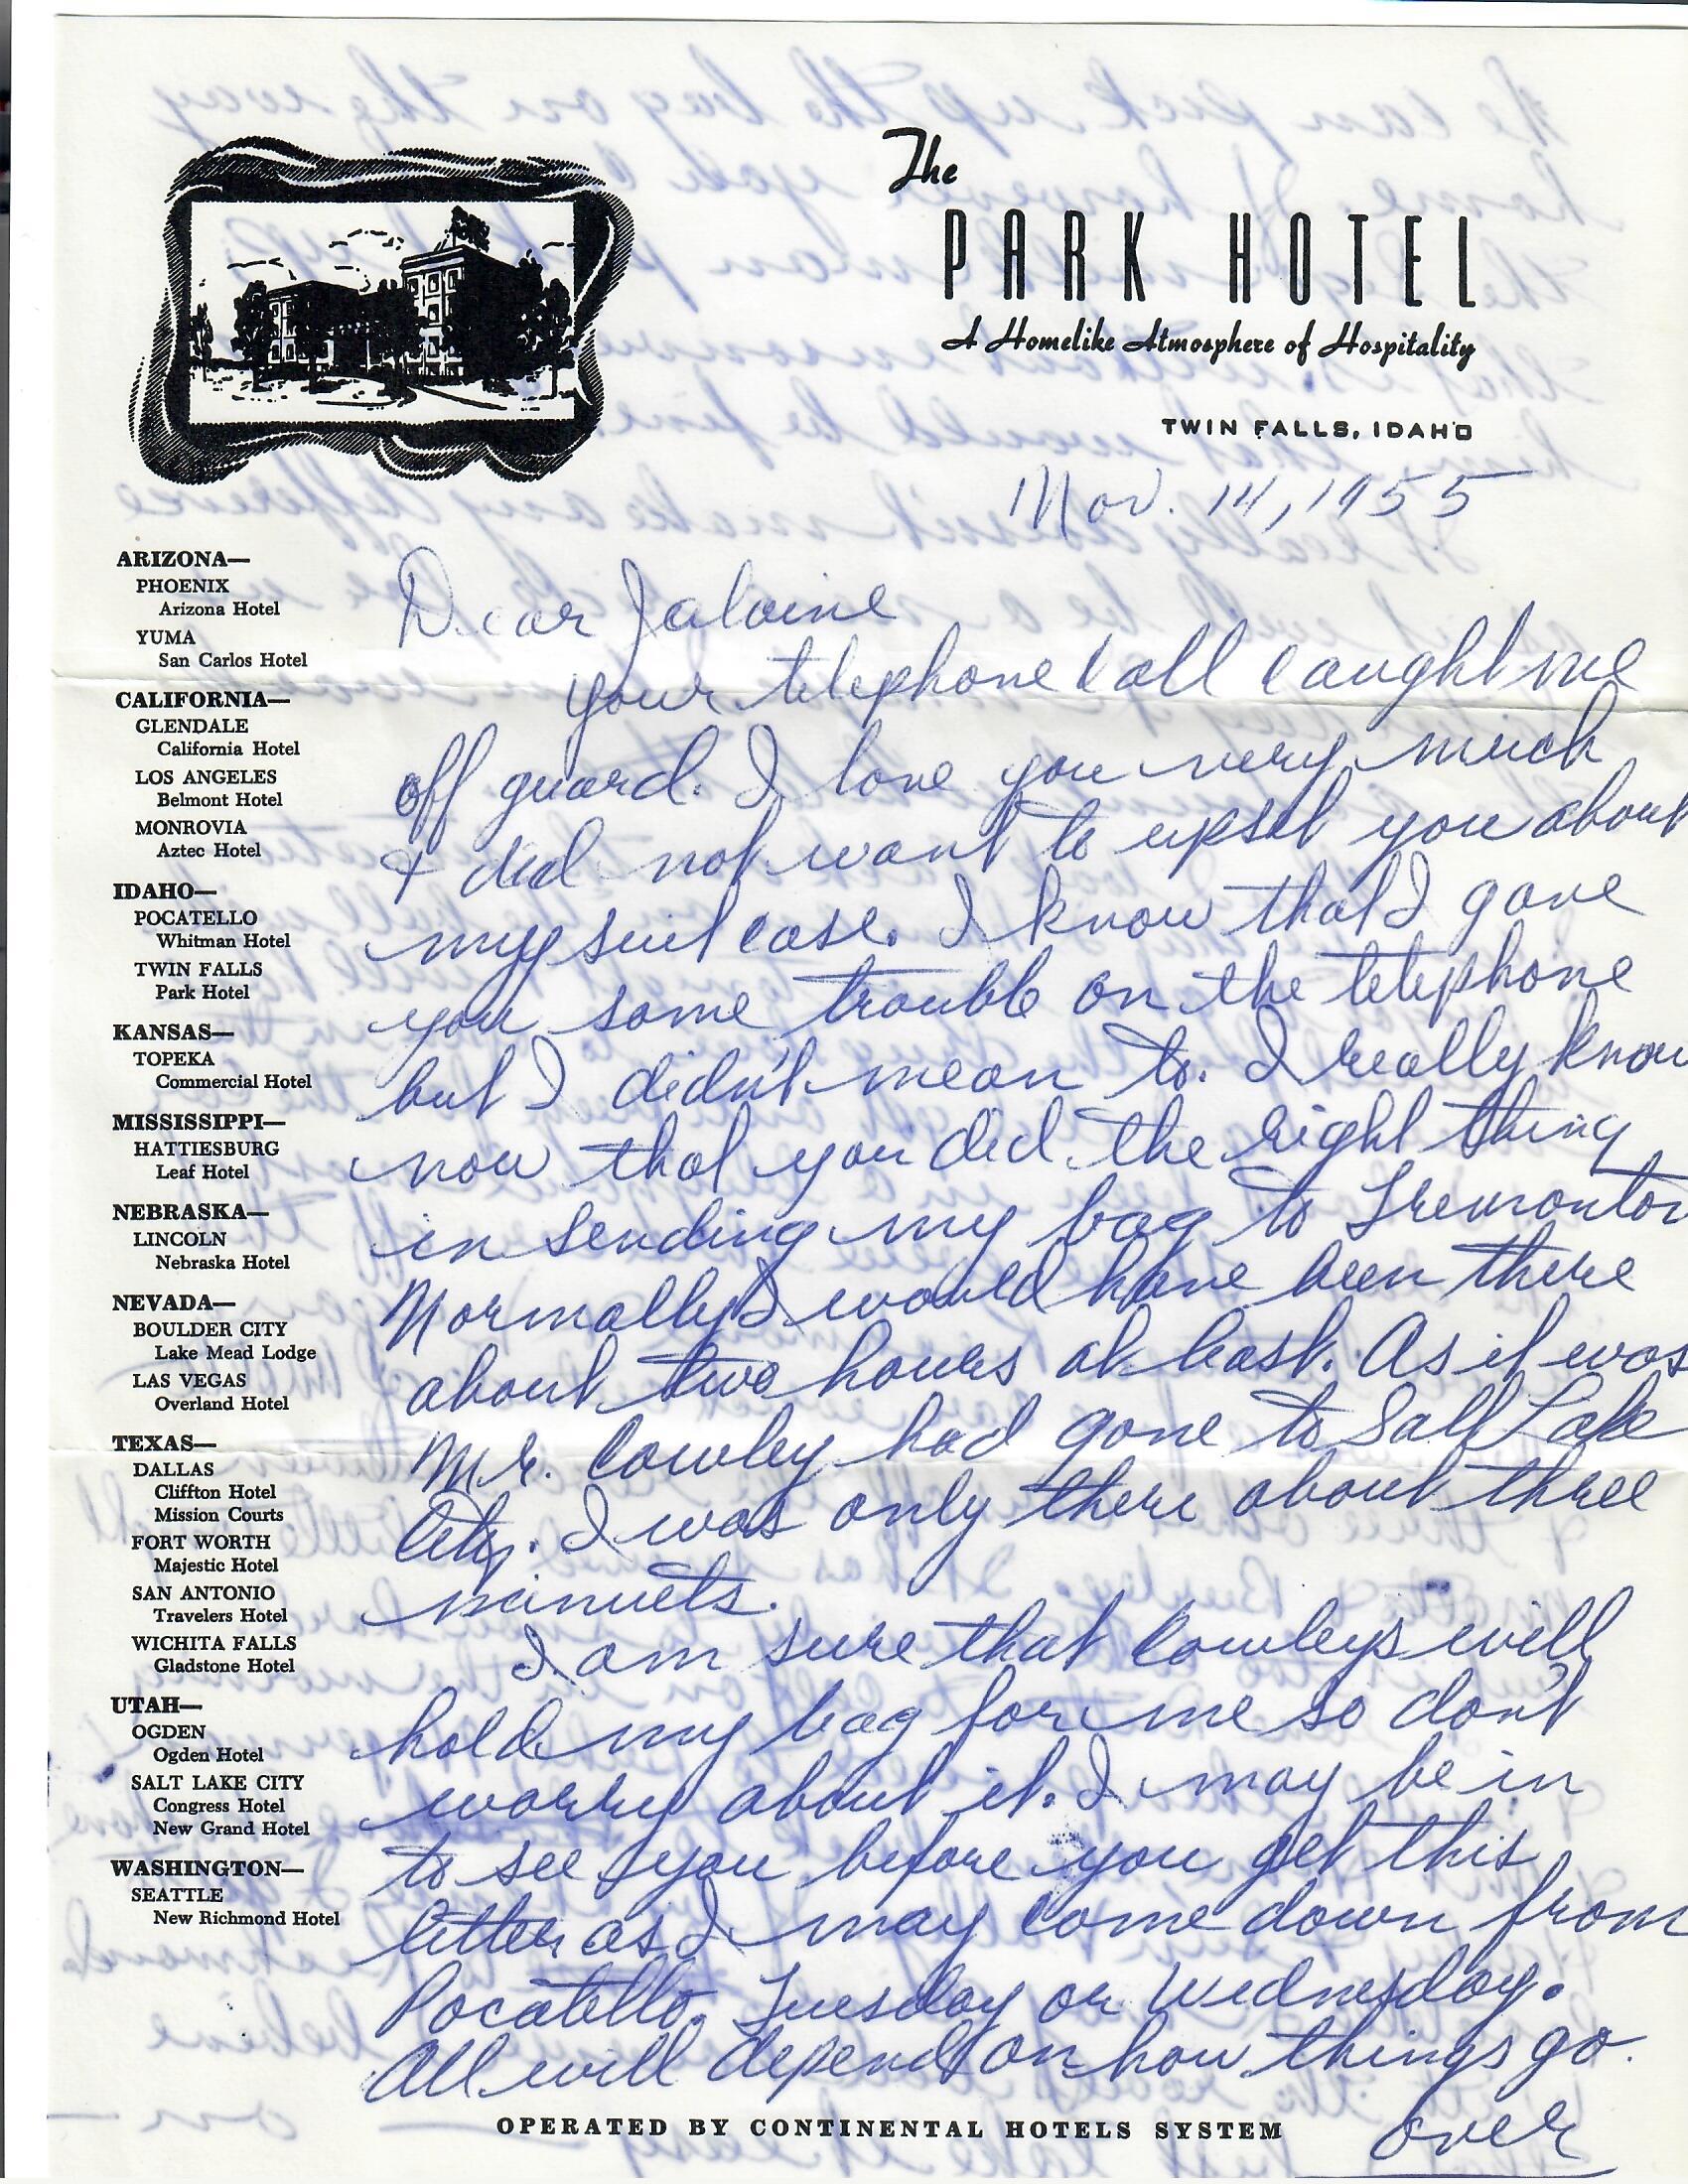 The
PARK HOTEL
A Homelike Atmosphere of Hospitality
TWIN FALLS, IDAHO
Nov. 14, 1955
ARIZONA—
PHOENIX
Arizona Hotel
YUMA
San Carlos Hotel
CALIFORNIA—
GLENDALE
California Hotel
LOS ANGELES
Belmont Hotel
MONROVIA
Aztec Hotel
IDAHO—
POCATELLO
Whitman Hotel
TWIN FALLS
Park Hotel
KANSAS—
TOPEKA
Commercial Hotel
MISSISSIPPI—
HATTIESBURG
Leaf Hotel
NEBRASKA—
LINCOLN
Nebraska Hotel
NEVADA—
BOULDER CITY
Lake Mead Lodge
LAS VEGAS
Overland Hotel
TEXAS—
DALLAS
Cliffton Hotel
Mission Courts
FORT WORTH
Majestic Hotel
SAN ANTONIO
Travelers Hotel
WICHITA FALLS
Gladstone Hotel
UTAH—
OGDEN
Ogden Hotel
SALT LAKE CITY
Congress Hotel
New Grand Hotel
WASHINGTON—
SEATTLE
New Richmond Hotel
Dear Jalaine
your telephone call caught me
off guard. I love you very much
& did not want to upset you about
my suit case. I know that I gave
you some trouble on the telephone
but I didn't mean to. I really know
now that you did the right thing
in sending my bag to Tremonton
Normally I would have been there
about two hours at least. As it was
Mr. Cowley had gone to Salt Lake
City. I was only there about three
minuets.
I am sure that Cowleys will
hold my bag for me so don't
worry about it. I may be in
to see you before you get this
letter as I may come down from
Pocatello. Tuesday or Wednesday.
All will depend on how things go.
over
OPERATED BY CONTINENTAL HOTELS SYSTEM